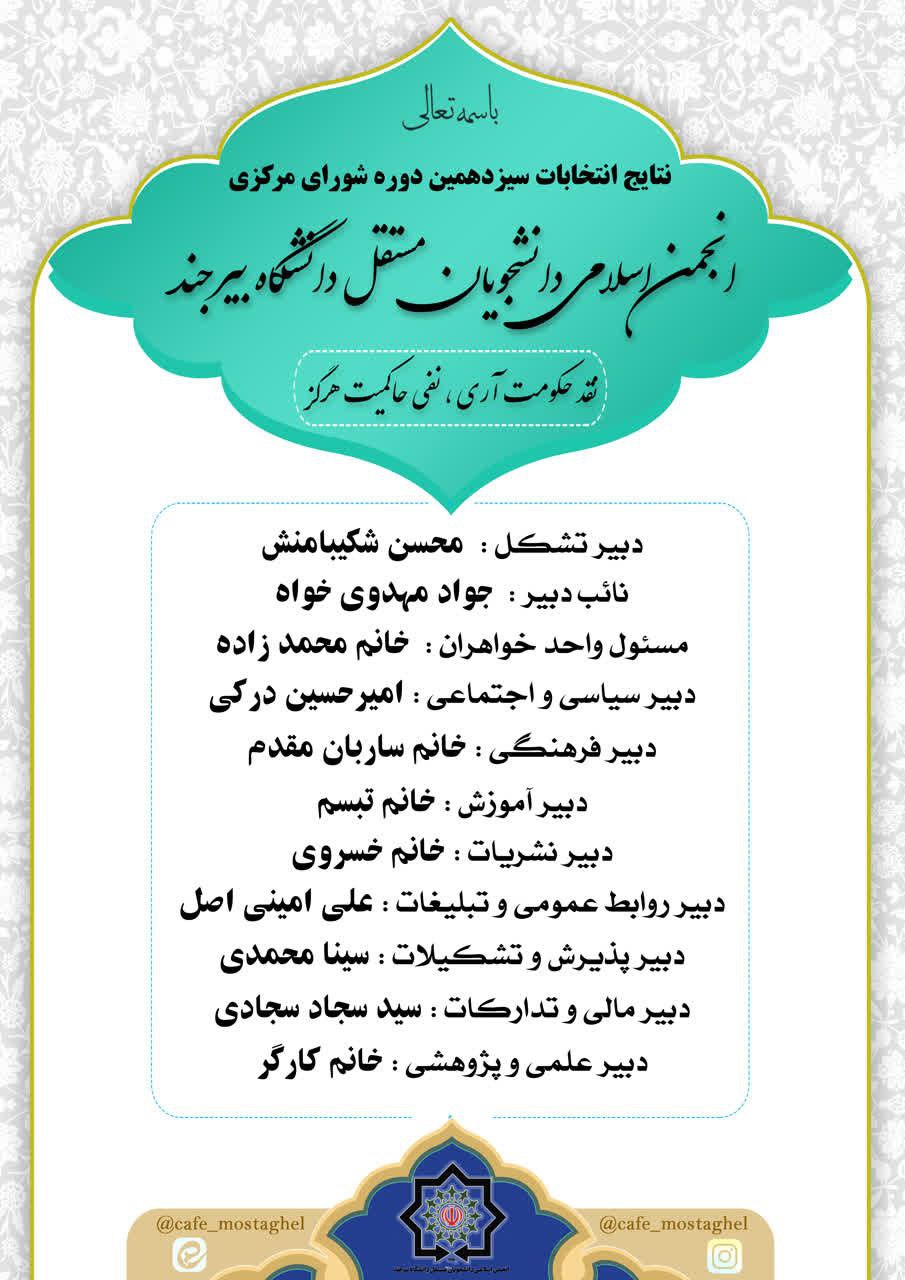 باسمه تعالی
نتایج انتخابات سیزدهمین دوره شورای مرکزی
انجمن اسلامی دانشجویان مستقل دانشگاه بیرجند
نقد حکومت آری ، نفی حاکمیت هرگز
دبیر تشکل : محسن شکیبامنش
نائب دبیر : جواد مهدوی خواه
مسئول واحد خواهران : خانم محمد زاده
دبیر سیاسی و اجتماعی : امیرحسین درکی
دبیر فرهنگی : خانم ساربان مقدم
دبیر آموزش : خانم تبسم
دبیر نشریات : خانم خسروی
دبیر روابط عمومی و تبلیغات : علی امینی اصل
دبیر پذیرش و تشکیلات : سینا محمدی
دبیر مالی و تدارکات : سید سجاد سجادی
دبیر علمی و پژوهشی : خانم کارگر
@cafe_mostaghel
@cafe_mostaghel
انجمن اسلامی دانشجویان مستقل دانشگاه بیرجند